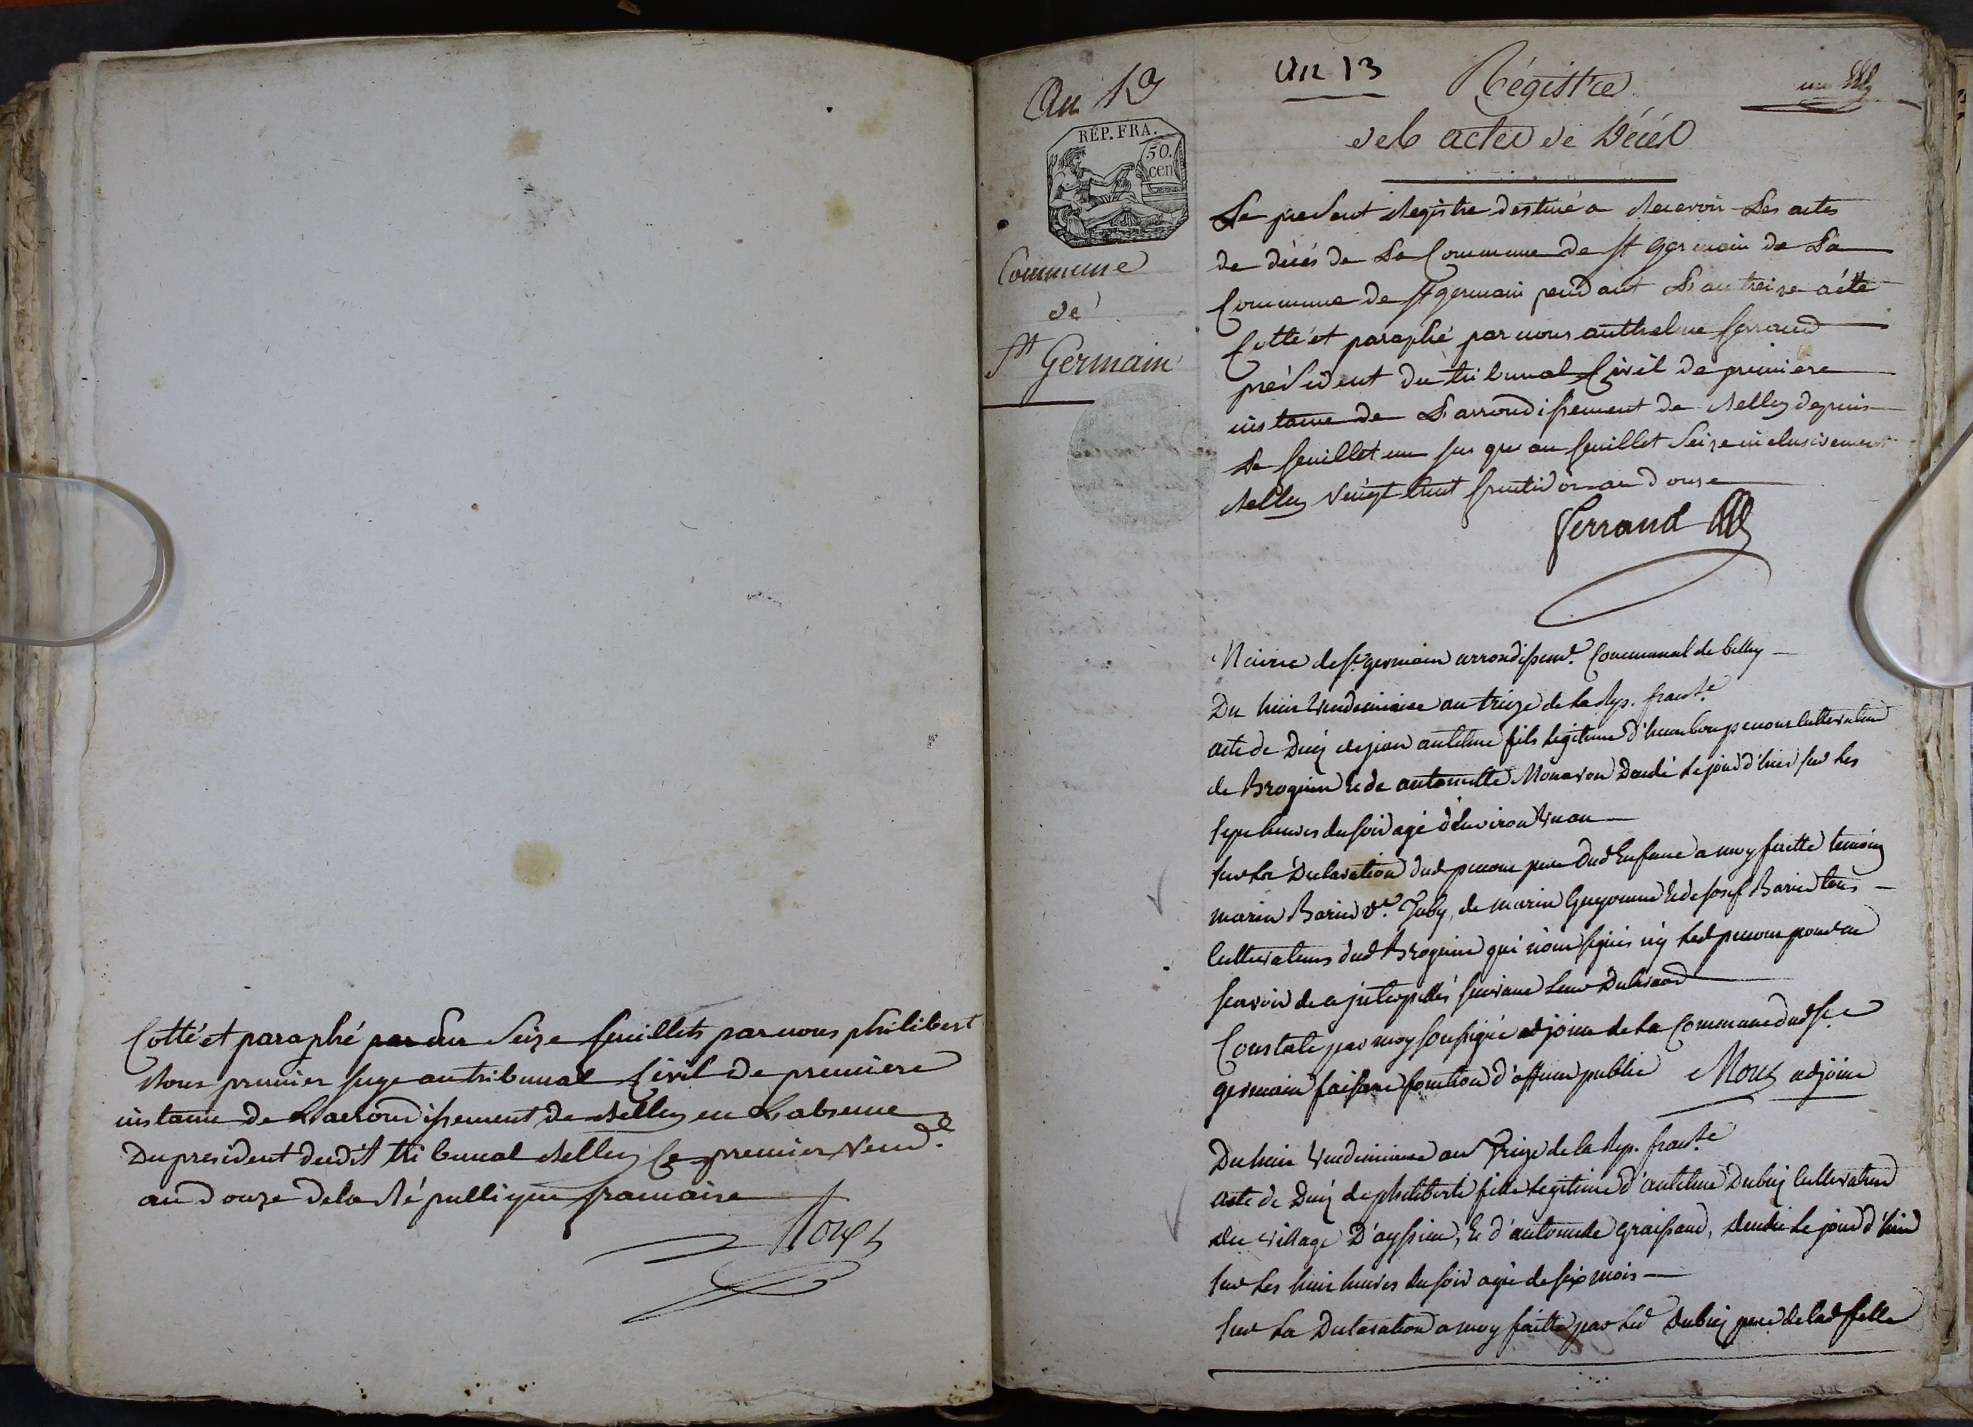 Cotté et paraphé par sur Seize feuillets par nous philibert
Roux premier juge au tribunal Civil de première
instance de L'arrondissement de Belley en L'absence
Du président dudit tribunal Belley Ce premier Vend.re
an douze de la République francaise
Roux
An 13
RÉP. FRA.
50.
cen
Commune
de
St Germain
An 13
Régistre
des actes de Décès
un
Le present Registre destiné a Recevoir Les actes
de décés de La Commune de St germain de La
Commune de St germain pendant L'an treize a été
Cotté et paraphé par nous anthelme ferrand
président du tribunal Civil de premiere
instance de L'arrondissement de Belley depuis
Le feuillet un jus que au feuillet Seize inclusivement
Belley Vingt huit fructidor an douze
ferrand
Mairie de St germain arrondissemt. Communal de belley
Du huit Vendemiaire an treize de la Rep. franse
acte de Decé de jean antelme fils legitime d'humbert penour Cultivateur
de Brognin et de antoinette Monavon Decedé le jour d'hier sur les
sept heures du soir agé d'environ Un an
sur La Declaration dud penour pere dud Enfant a moy faitte temoins
marin Barin dt. Juby, de marin Guyonne et de josef Barin tous
Cultivateurs dud Brognin qui n'ont signés ny led penour pour ne
scavoir de ce jnterpellés suivant Leur Declaraon
Constaté par moy soussigné adjoint de la Commune dud St
germain faisant fonction d'officier public Roux adjoint
Du huit Vendemiaire an Treize de la Rep. franse
acte de Decé de philiberte fille legitime d'antelme Dubiez Cultivateur
du village D'ayssieu, et d'antoinette graissand, decedée Le jour d'hier
sur Les huit heures du soir agée de six mois
sur La Declaration a moy faitte par led Dubiez pere de lad fille